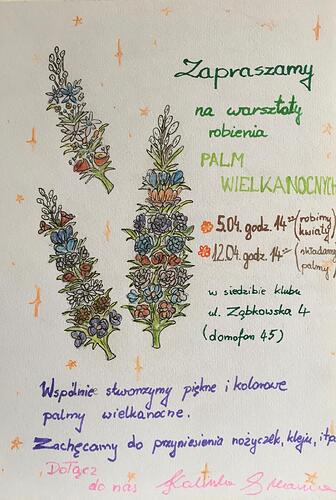 Zapraszamy
na warsztaty
robienia
PALM
WIELKANOCNYCH
5.04. godz. 14 (robimy
kwiaty)
12.04. godz. 14 (składamy
palmy)
w siedzibie klubu
ul. Ząbkowska 4
(domofon 45)
Wspólnie stworzymy piękne i kolorowe
palmy wielkanocne.
Zachęcamy do przyniesienia nożyczek, kleju, itp.
Dołącz
do nas